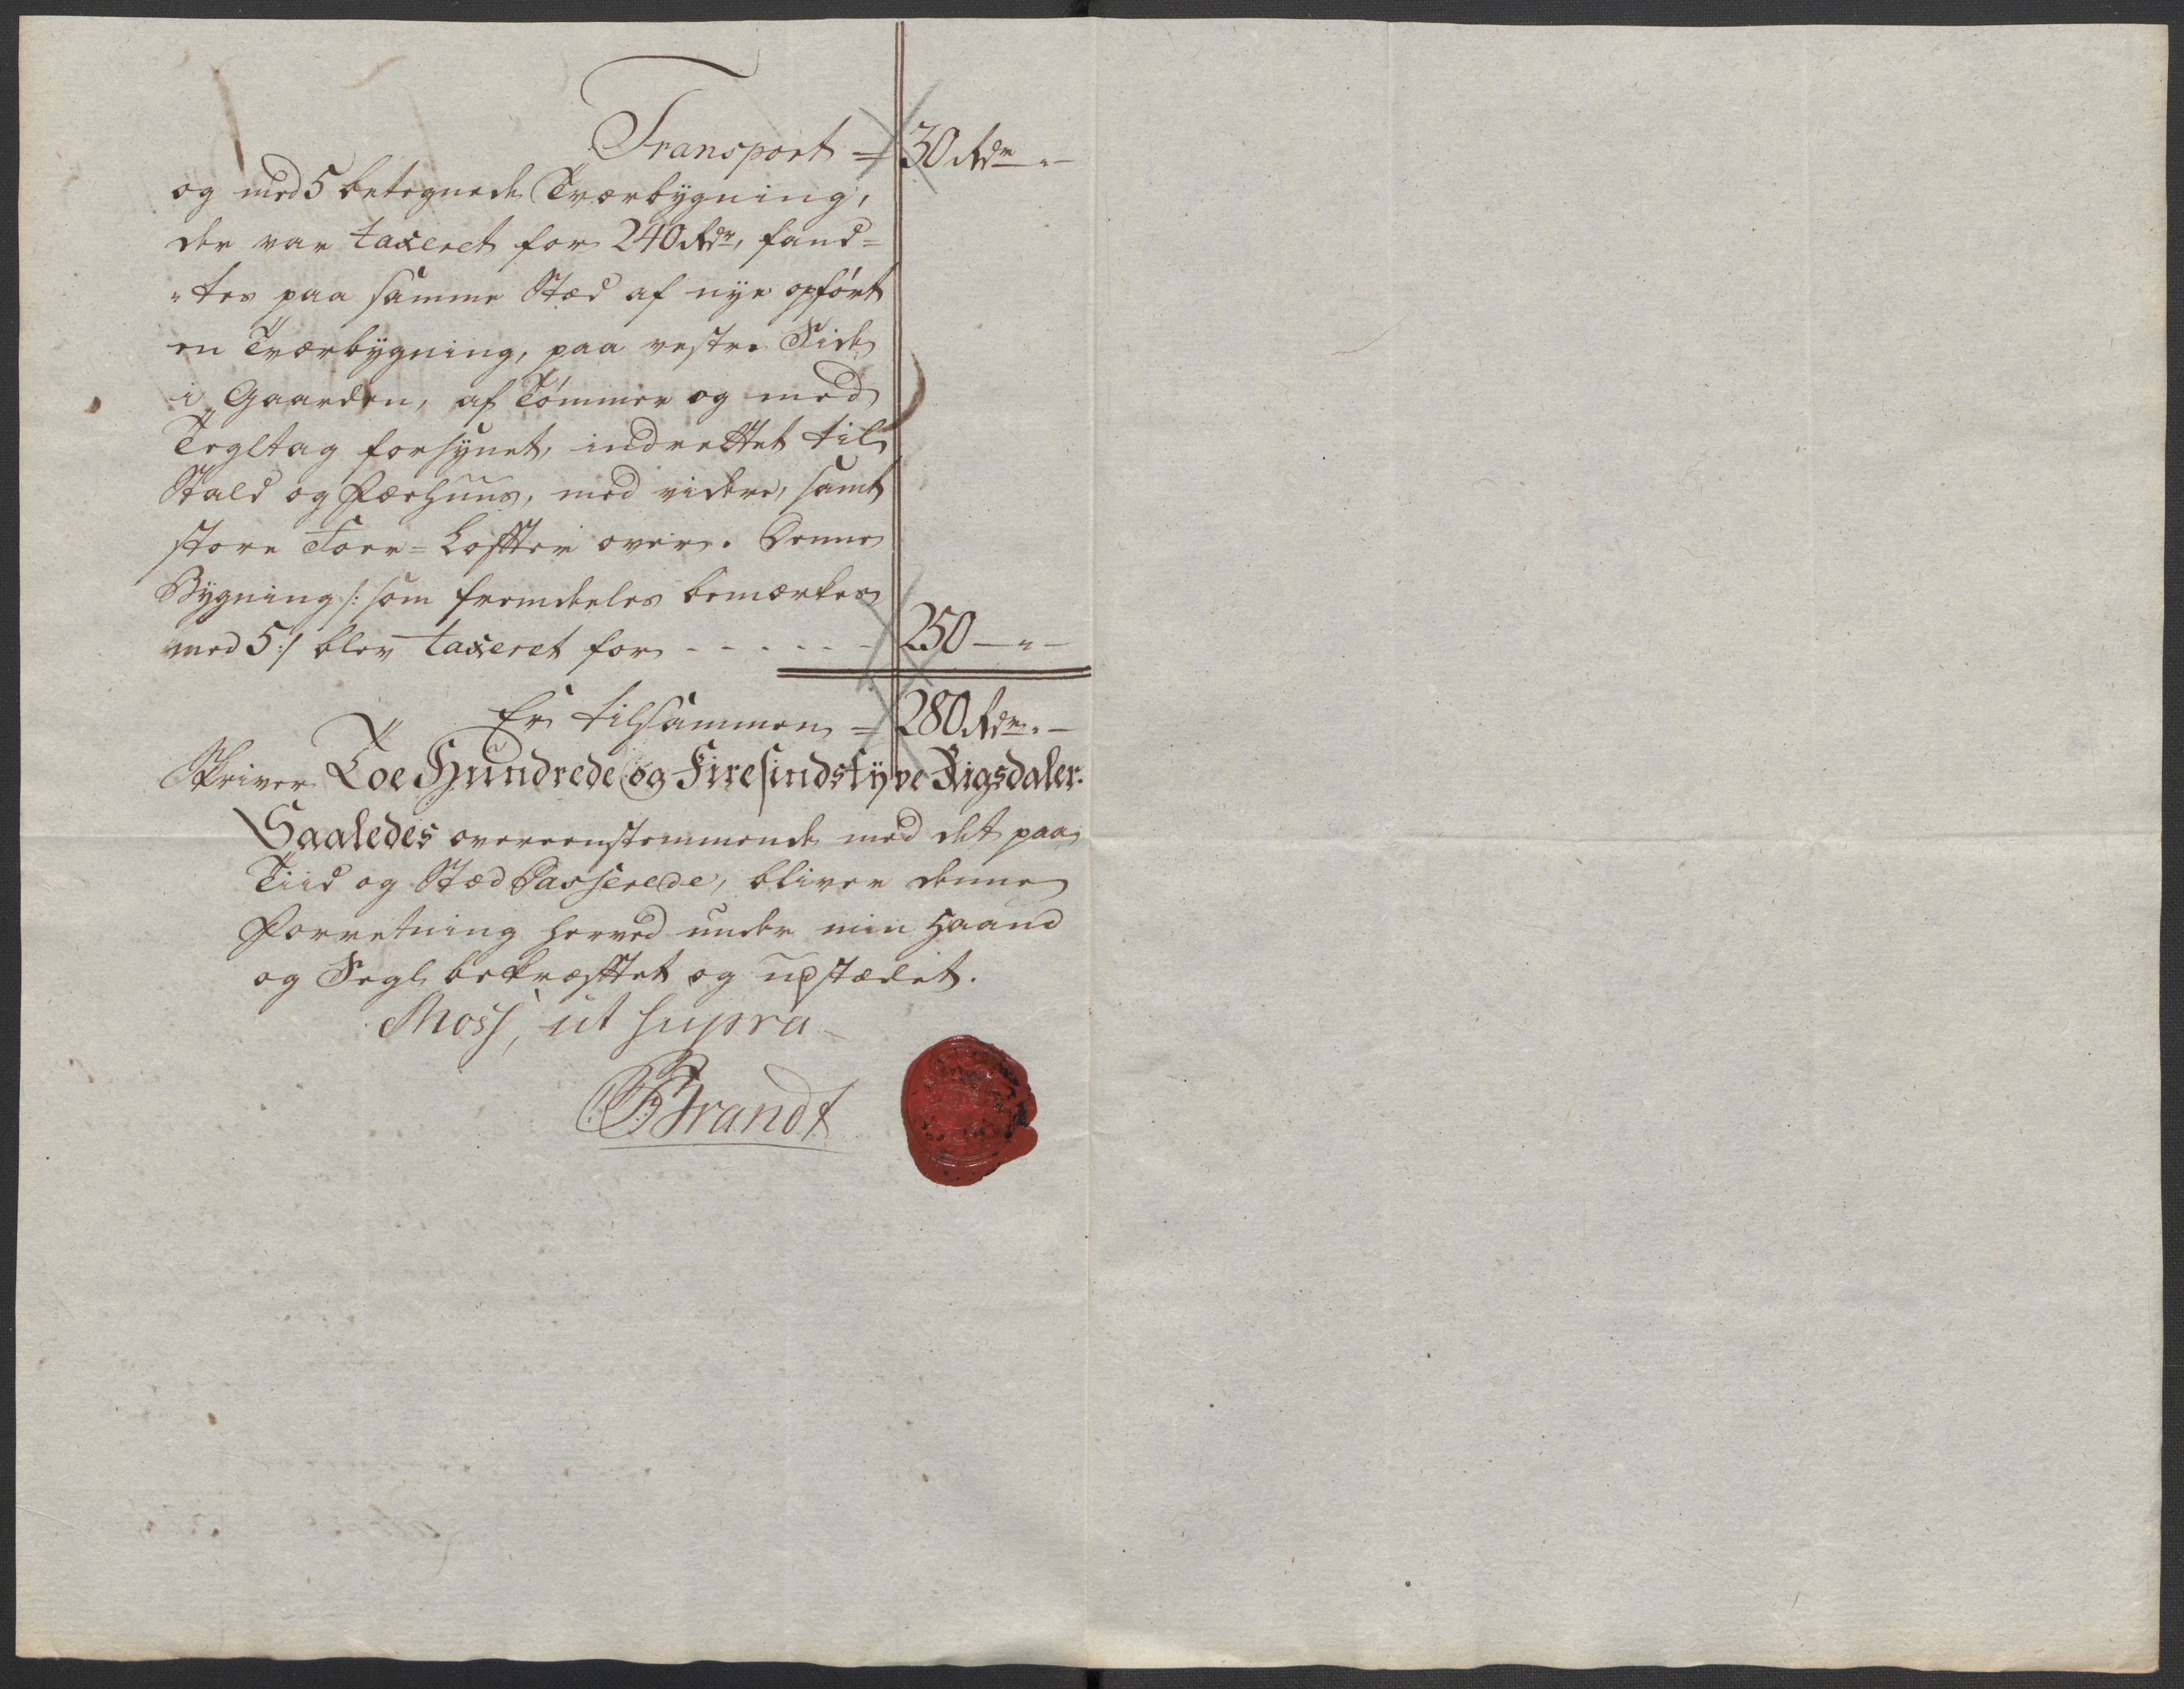 Transport = 30 Rdr „ —
og med 5 betegnede Tværbÿgning,
der var taxeret for 240 Rdr, fand=
„tes paa samme Stæd af nÿe opfört
en Tværbÿgning, paa vestre Side
i Gaarden, af Tömmer og med
Tegltag forsÿnet, indrettet til
Stald og Færhuus, med videre, samt
store Foer=Loftter over. Denne
Bÿgning /: som fremdeeles bemærkes
med 5 :/ blev taxeret for - - - - - - 250 — „ —
Er tilsammen = 280 Rdr „ —
Skriver Toe Hundrede og Firesindstÿve Rigsdaler.
Saaledes overeenstemmende med det paa
Tiid og Stæd Passerede, bliver denne
Forretning herved under min Haand
og Segl bekræfttet og udstædet.
Moss, ut supra
Brandt